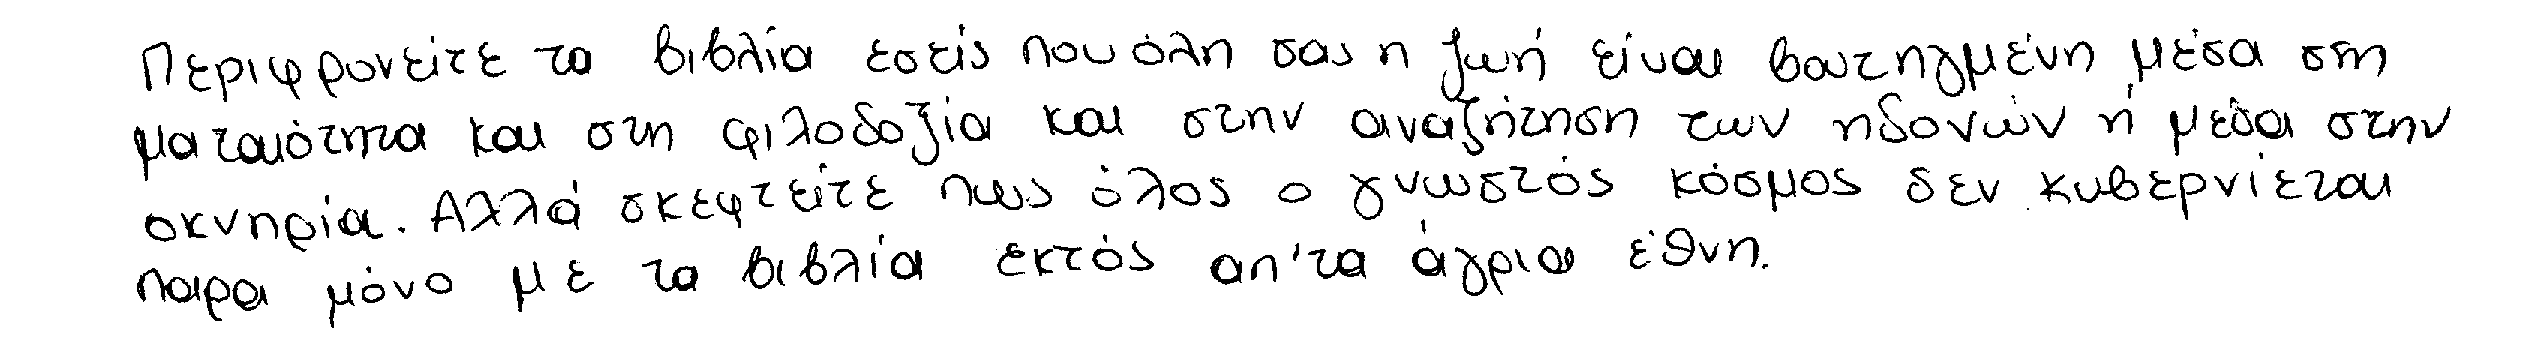 Περιφρονείτε τα βιβλία εσείς που όλη σας η ζωή είναι βουτηγμένη μέσα στη
ματαιότητα και στη φιλοδοξία και στην αναζήτηση των ηδονών ή μέσα στην
οκνηρία. Αλλά σκεφτείτε πως όλος ο γνωστός κόσμος δεν κυβερνιέται
παρα μόνο με τα βιβλία εκτός απ'τα άγρια έθνη.